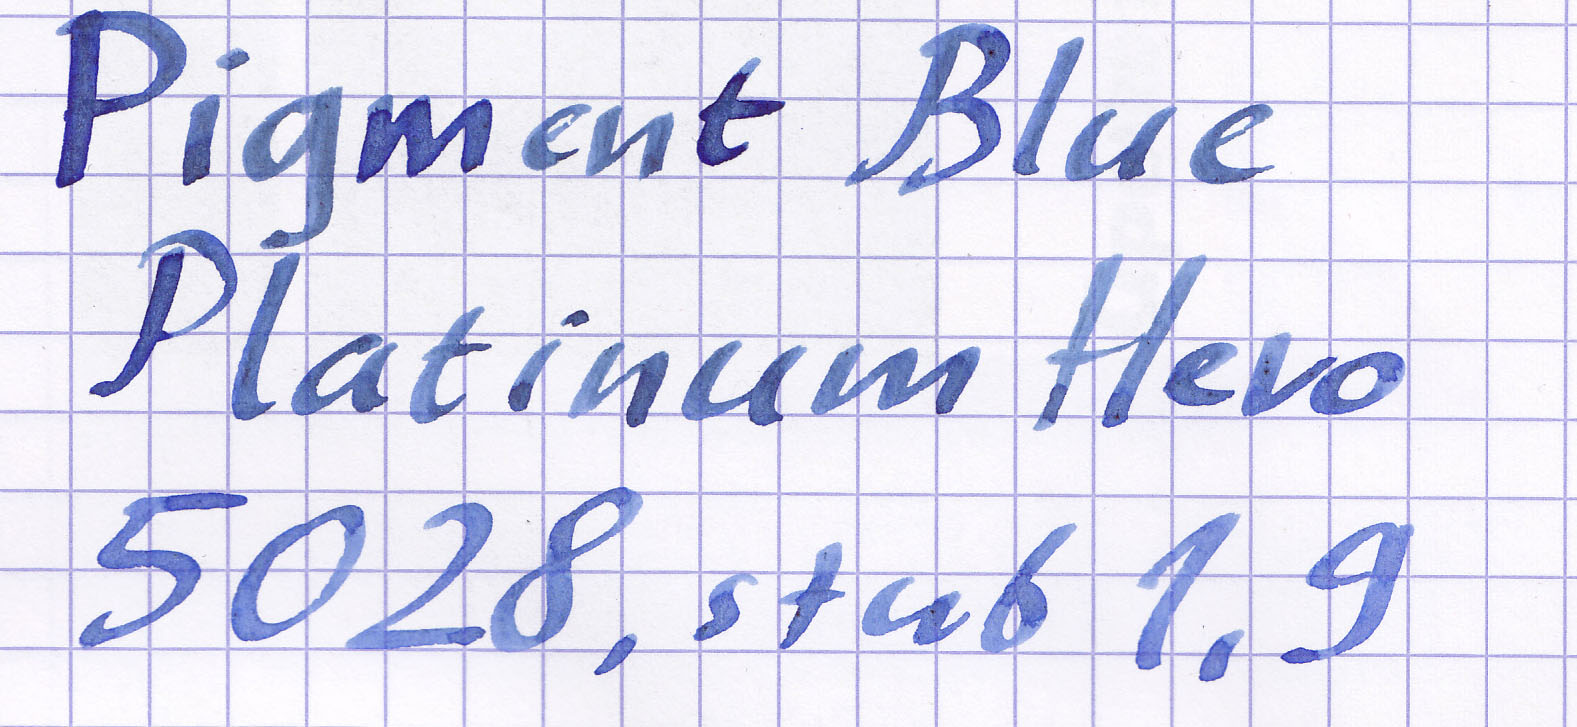 Pigment Blue
Platinum Hero
5028, stub 1,9